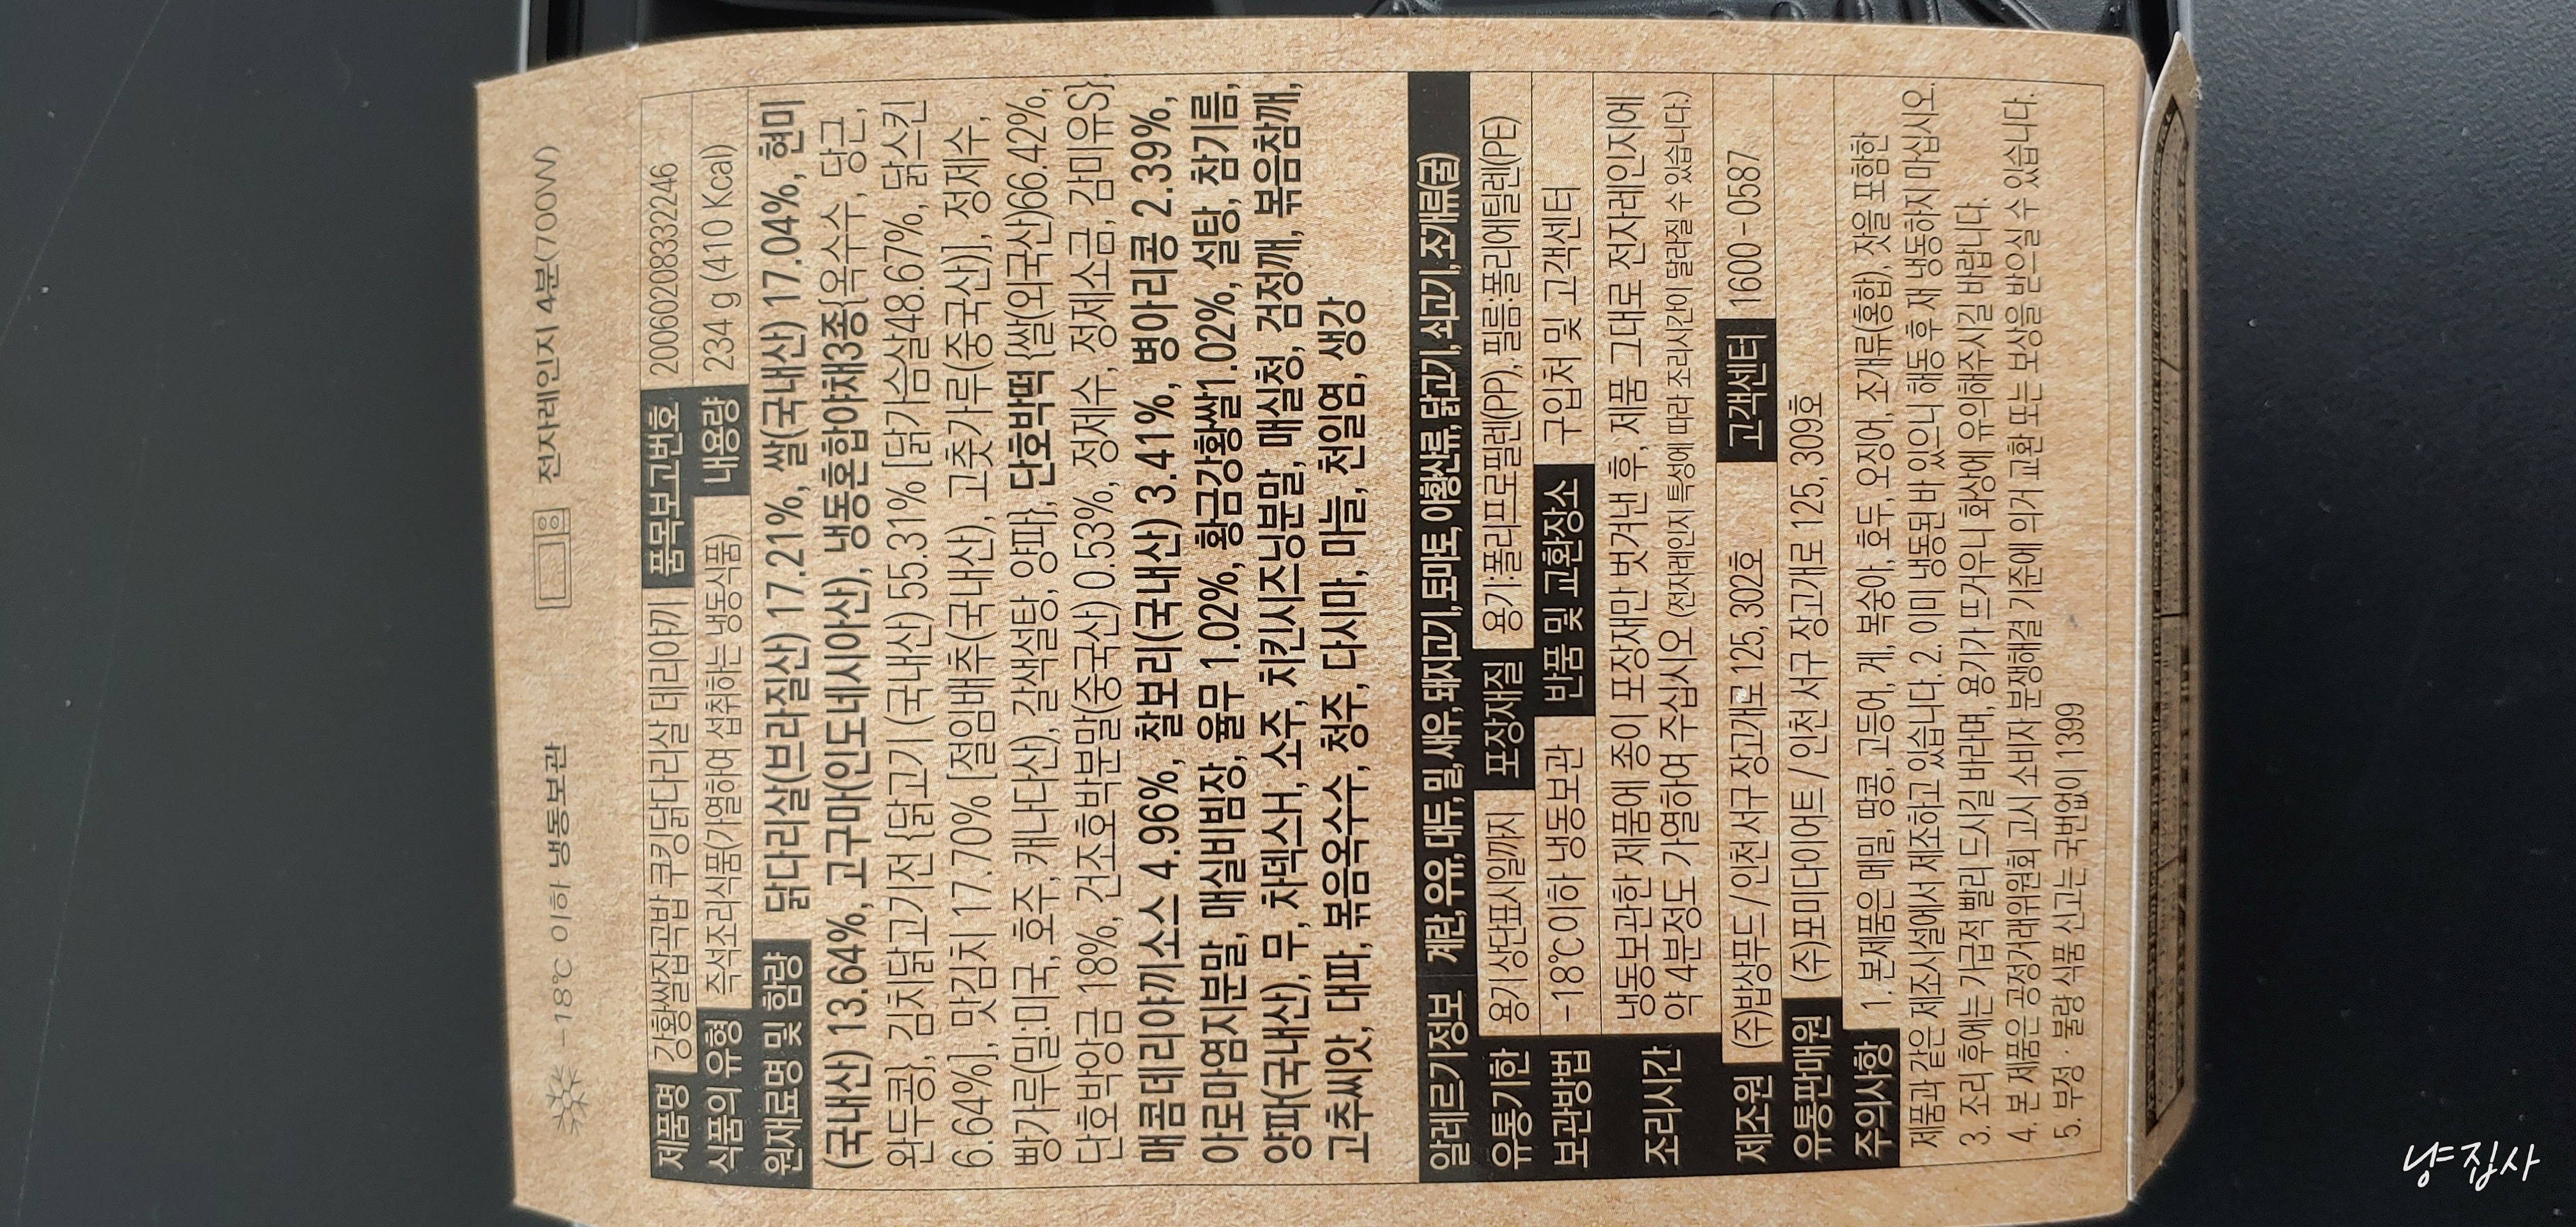 -18℃ 이하 냉동보관 전자레인지 4분(700W)
제품명 강황쌀잡곡밥 쿠킹닭다리살 데리야끼 품목보고번호 20060208332246
식품의 유형 즉석조리식품(가열하여 섭취하는 냉동식품) 내용량 234 g (410 Kcal)
원재료명 및 함량 닭다리살(브라질산) 17.21%, 쌀(국내산) 17.04%, 현미
(국내산) 13.64%, 고구마(인도네시아산), 냉동혼합야채3종{옥수수, 당근,
완두콩}, 김치닭고기전 {닭고기 (국내산) 55.31% [닭가슴살48.67%, 닭스킨
6.64%], 맛김치 17.70% [절임배추(국내산), 고춧가루(중국산)], 정제수,
빵가루(밀:미국, 호주, 캐나다산), 갈색설탕, 양파}, 단호박떡 {쌀(외국산)66.42%,
단호박앙금 18%, 건조호박분말(중국산) 0.53%, 정제수, 정제소금, 감미유S}
매콤데리야끼소스 4.96%, 찰보리(국내산) 3.41%, 병아리콩 2.39%,
아로마염지분말, 매실비빔장, 율무 1.02%, 황금강황쌀1.02%, 설탕, 참기름,
양파(국내산), 무, 차덱스H, 소주, 치킨시즈닝분말, 매실청, 검정깨, 볶음참깨,
고추씨앗, 대파, 볶음옥수수, 청주, 다시마, 마늘, 천일염, 생강
알레르기정보 계란, 우유, 대두, 밀, 새우, 돼지고기, 토마토, 아황산류, 닭고기, 쇠고기, 조개류(굴)
유통기한 용기 상단표시일까지 포장재질 용기:폴리프로필렌(PP), 필름:폴리에틸렌(PE)
보관방법 -18℃이하 냉동보관 반품 및 교환장소 구입처 및 고객센터
조리시간 냉동보관한 제품에 종이 포장재만 벗겨낸 후, 제품 그대로 전자레인지에
약 4분정도 가열하여 주십시오 (전자레인지 특성에 따라 조리시간이 달라질 수 있습니다.)
제조원 (주)밥상푸드 / 인천 서구 장고개로 125, 302호 고객센터 1600-0587
유통판매원 (주)포미다이어트 / 인천 서구 장고개로 125, 309호
주의사항 1. 본제품은 메밀, 땅콩, 고등어, 게, 복숭아, 호두, 오징어, 조개류(홍합), 잣을 포함한
제품과 같은 제조시설에서 제조하고 있습니다. 2. 이미 냉동된 바 있으니 해동 후 재 냉동하지 마십시오.
3. 조리 후에는 가급적 빨리 드시길 바라며, 용기가 뜨거우니 화상에 유의해주시길 바랍니다.
4. 본 제품은 공정거래위원회 고시 소비자 분쟁해결 기준에 의거 교환 또는 보상을 받으실 수 있습니다.
5. 부정 · 불량 식품 신고는 국번없이 1399
냥집사